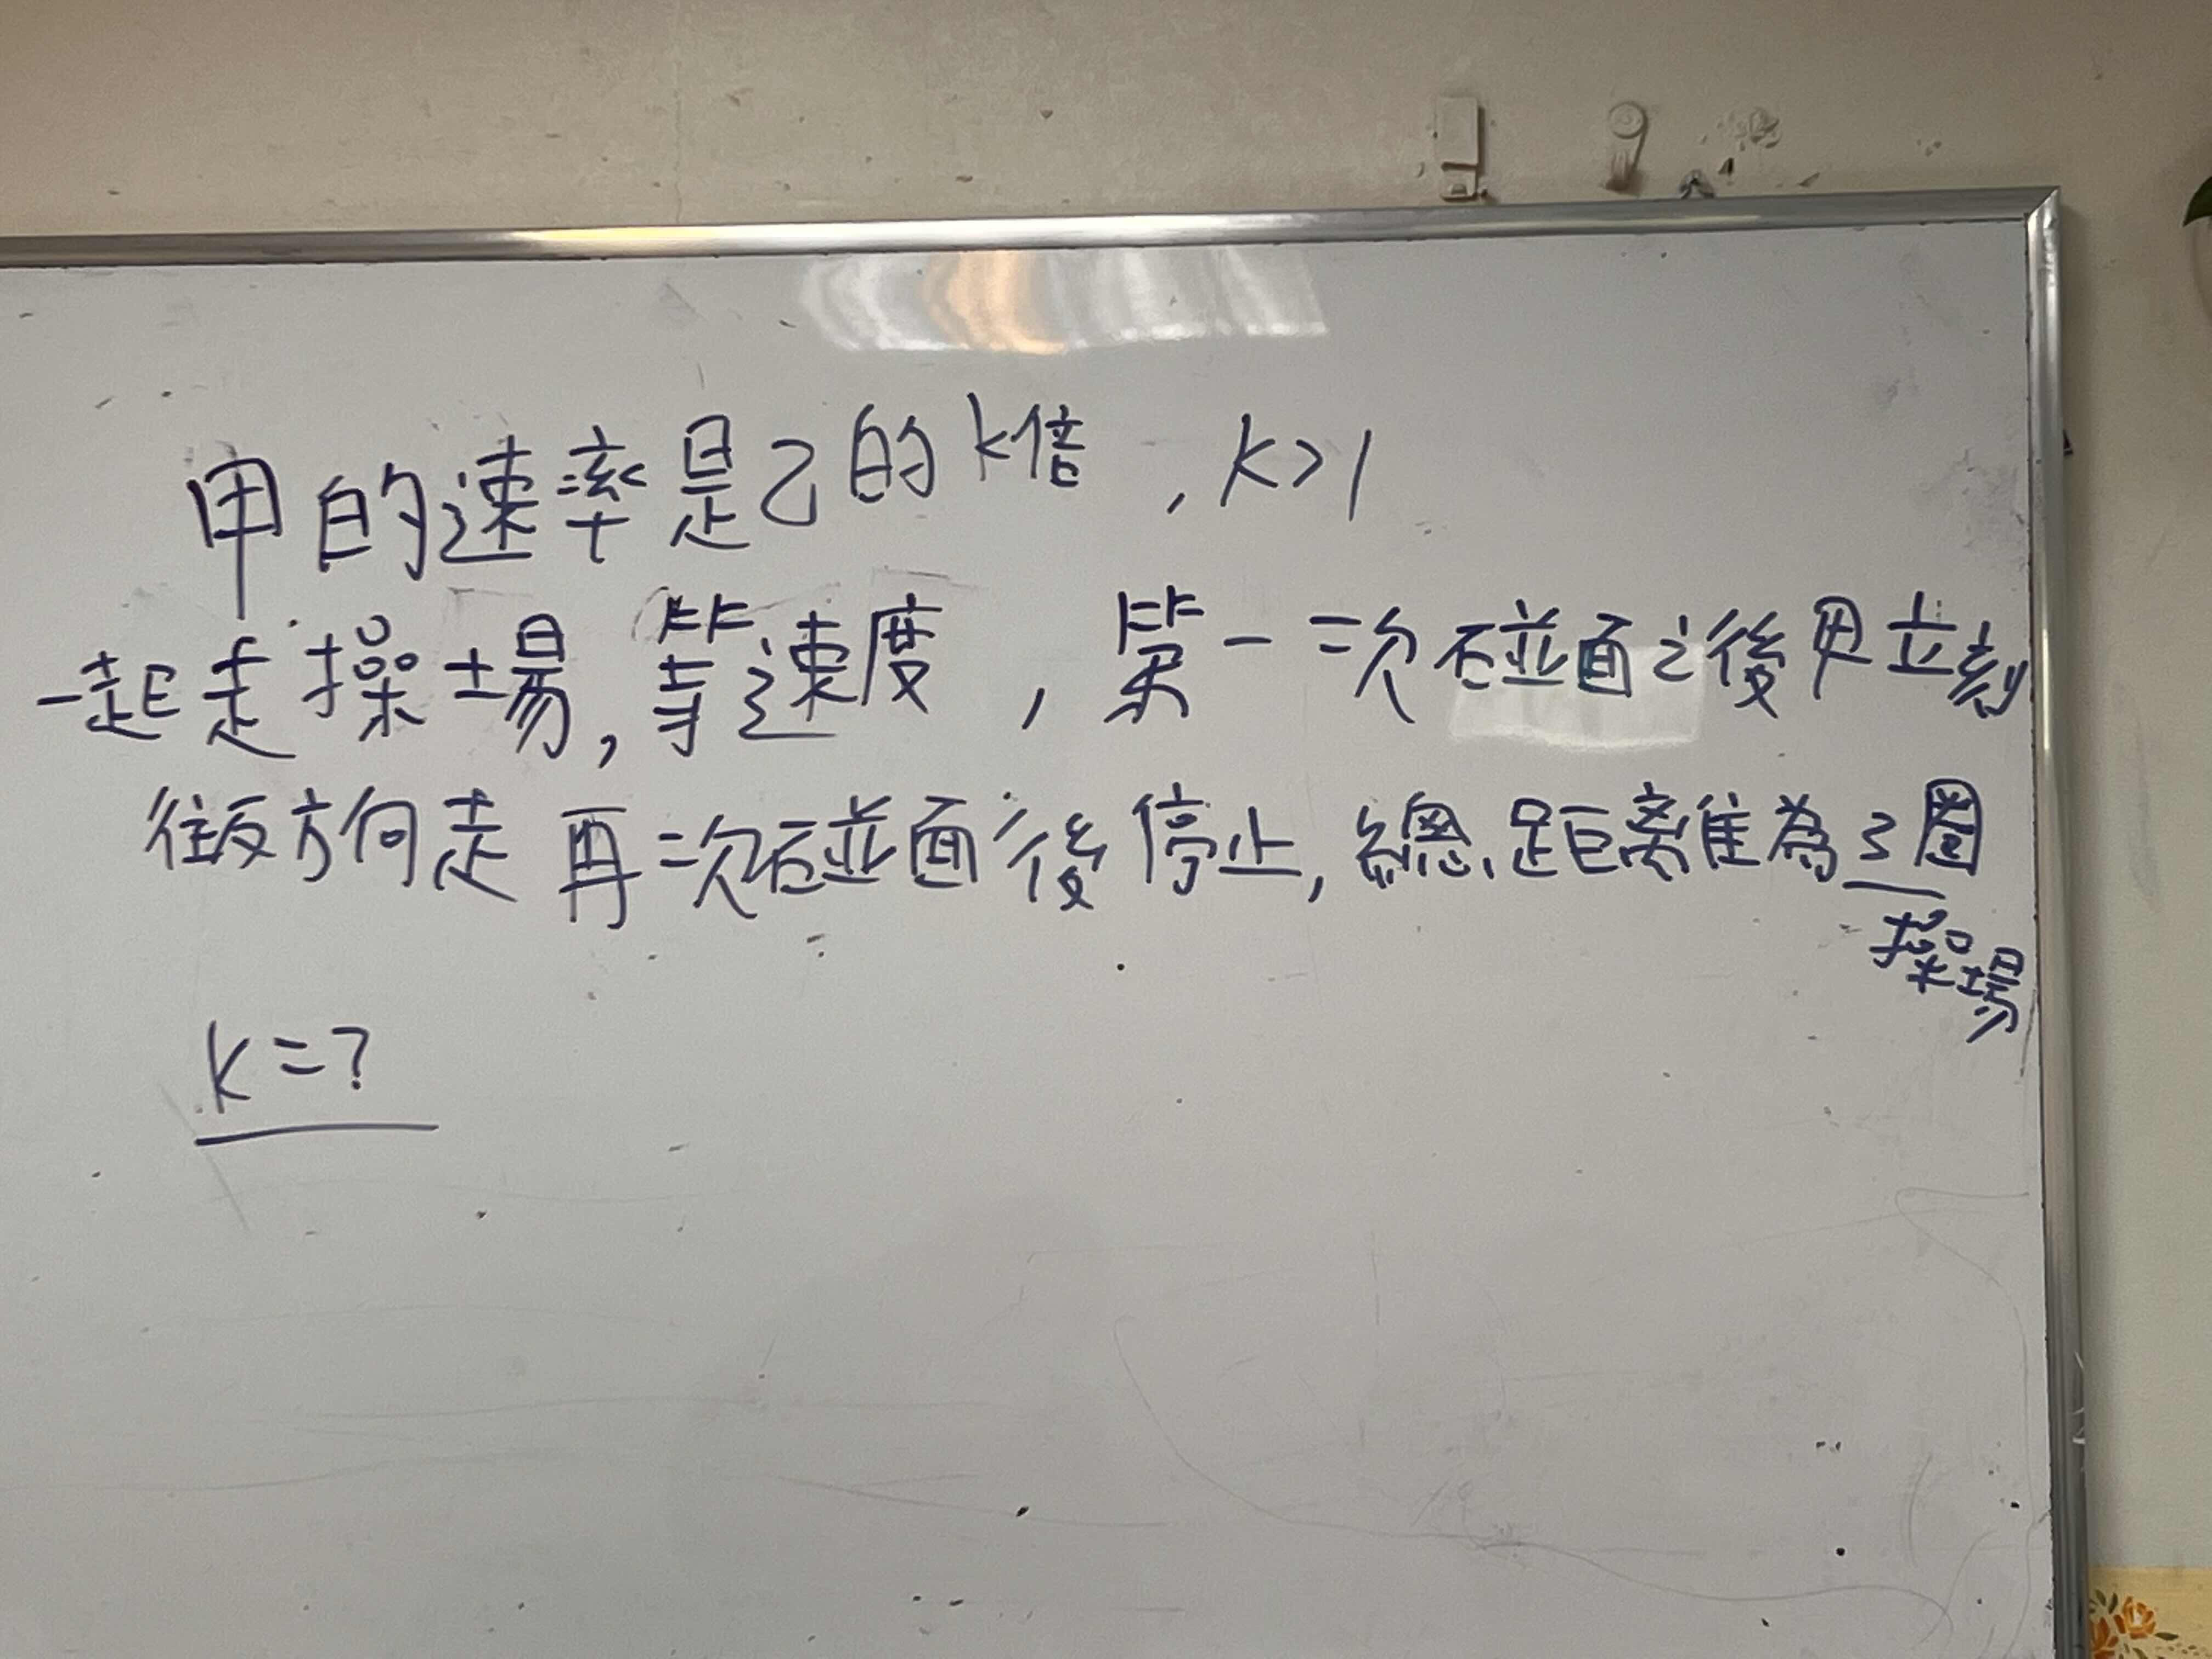 甲的速率是乙的k倍，k>1
一起走操場，等速度，第一次碰面之後甲立刻
往反方向走再次碰面後停止，總距離為3圈
操場
k=?